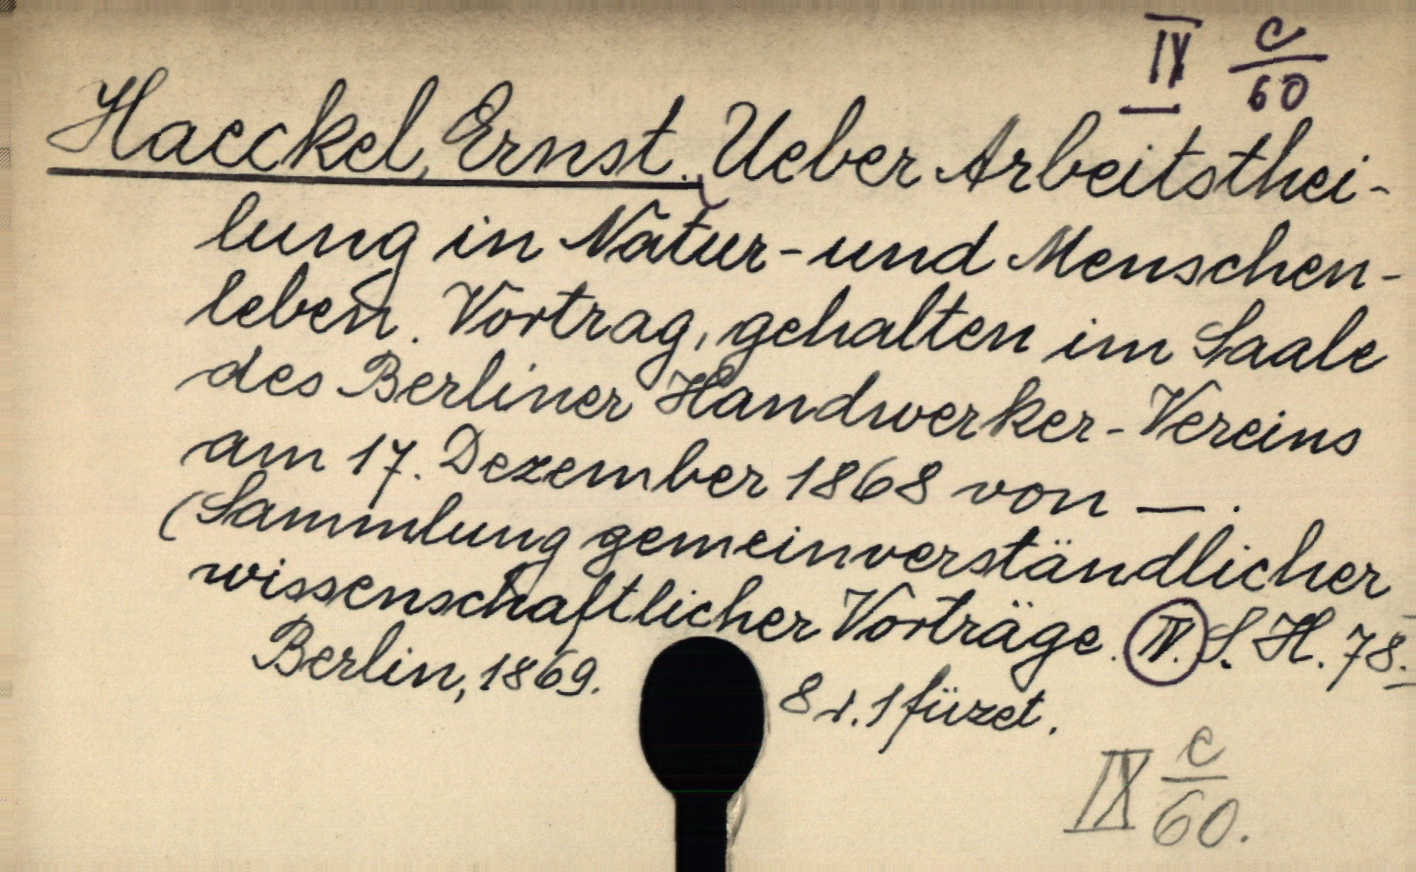 IX c/60
Haeckel, Ernst. Ueber Arbeitsthei-
lung in Natur- und Menschen-
leben. Vortrag, gehalten im Saale
des Berliner Handwerker-Vereins
am 17. Dezember 1868 von —.
(Sammlung gemeinverständlicher
wissenschaftlicher Vorträge. IV. S. H. 78.
Berlin, 1869. 8 r. 1 füzet.
IX c/60.